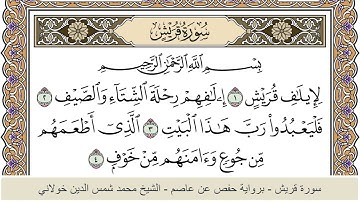 سُورَةُ قُرَيْشٍ
بِسْمِ اللَّهِ الرَّحْمَٰنِ الرَّحِيمِ
لِإِيلَٰفِ قُرَيْشٍ ١ إِۦلَٰفِهِمْ رِحْلَةَ الشِّتَآءِ وَالصَّيْفِ ٢
فَلْيَعْبُدُوا۟ رَبَّ هَٰذَا الْبَيْتِ ٣ الَّذِىٓ أَطْعَمَهُم
مِّن جُوعٍ وَءَامَنَهُم مِّنْ خَوْفٍۭ ٤
سورة قريش - برواية حفص عن عاصم - الشيخ محمد شمس الدين خولاني